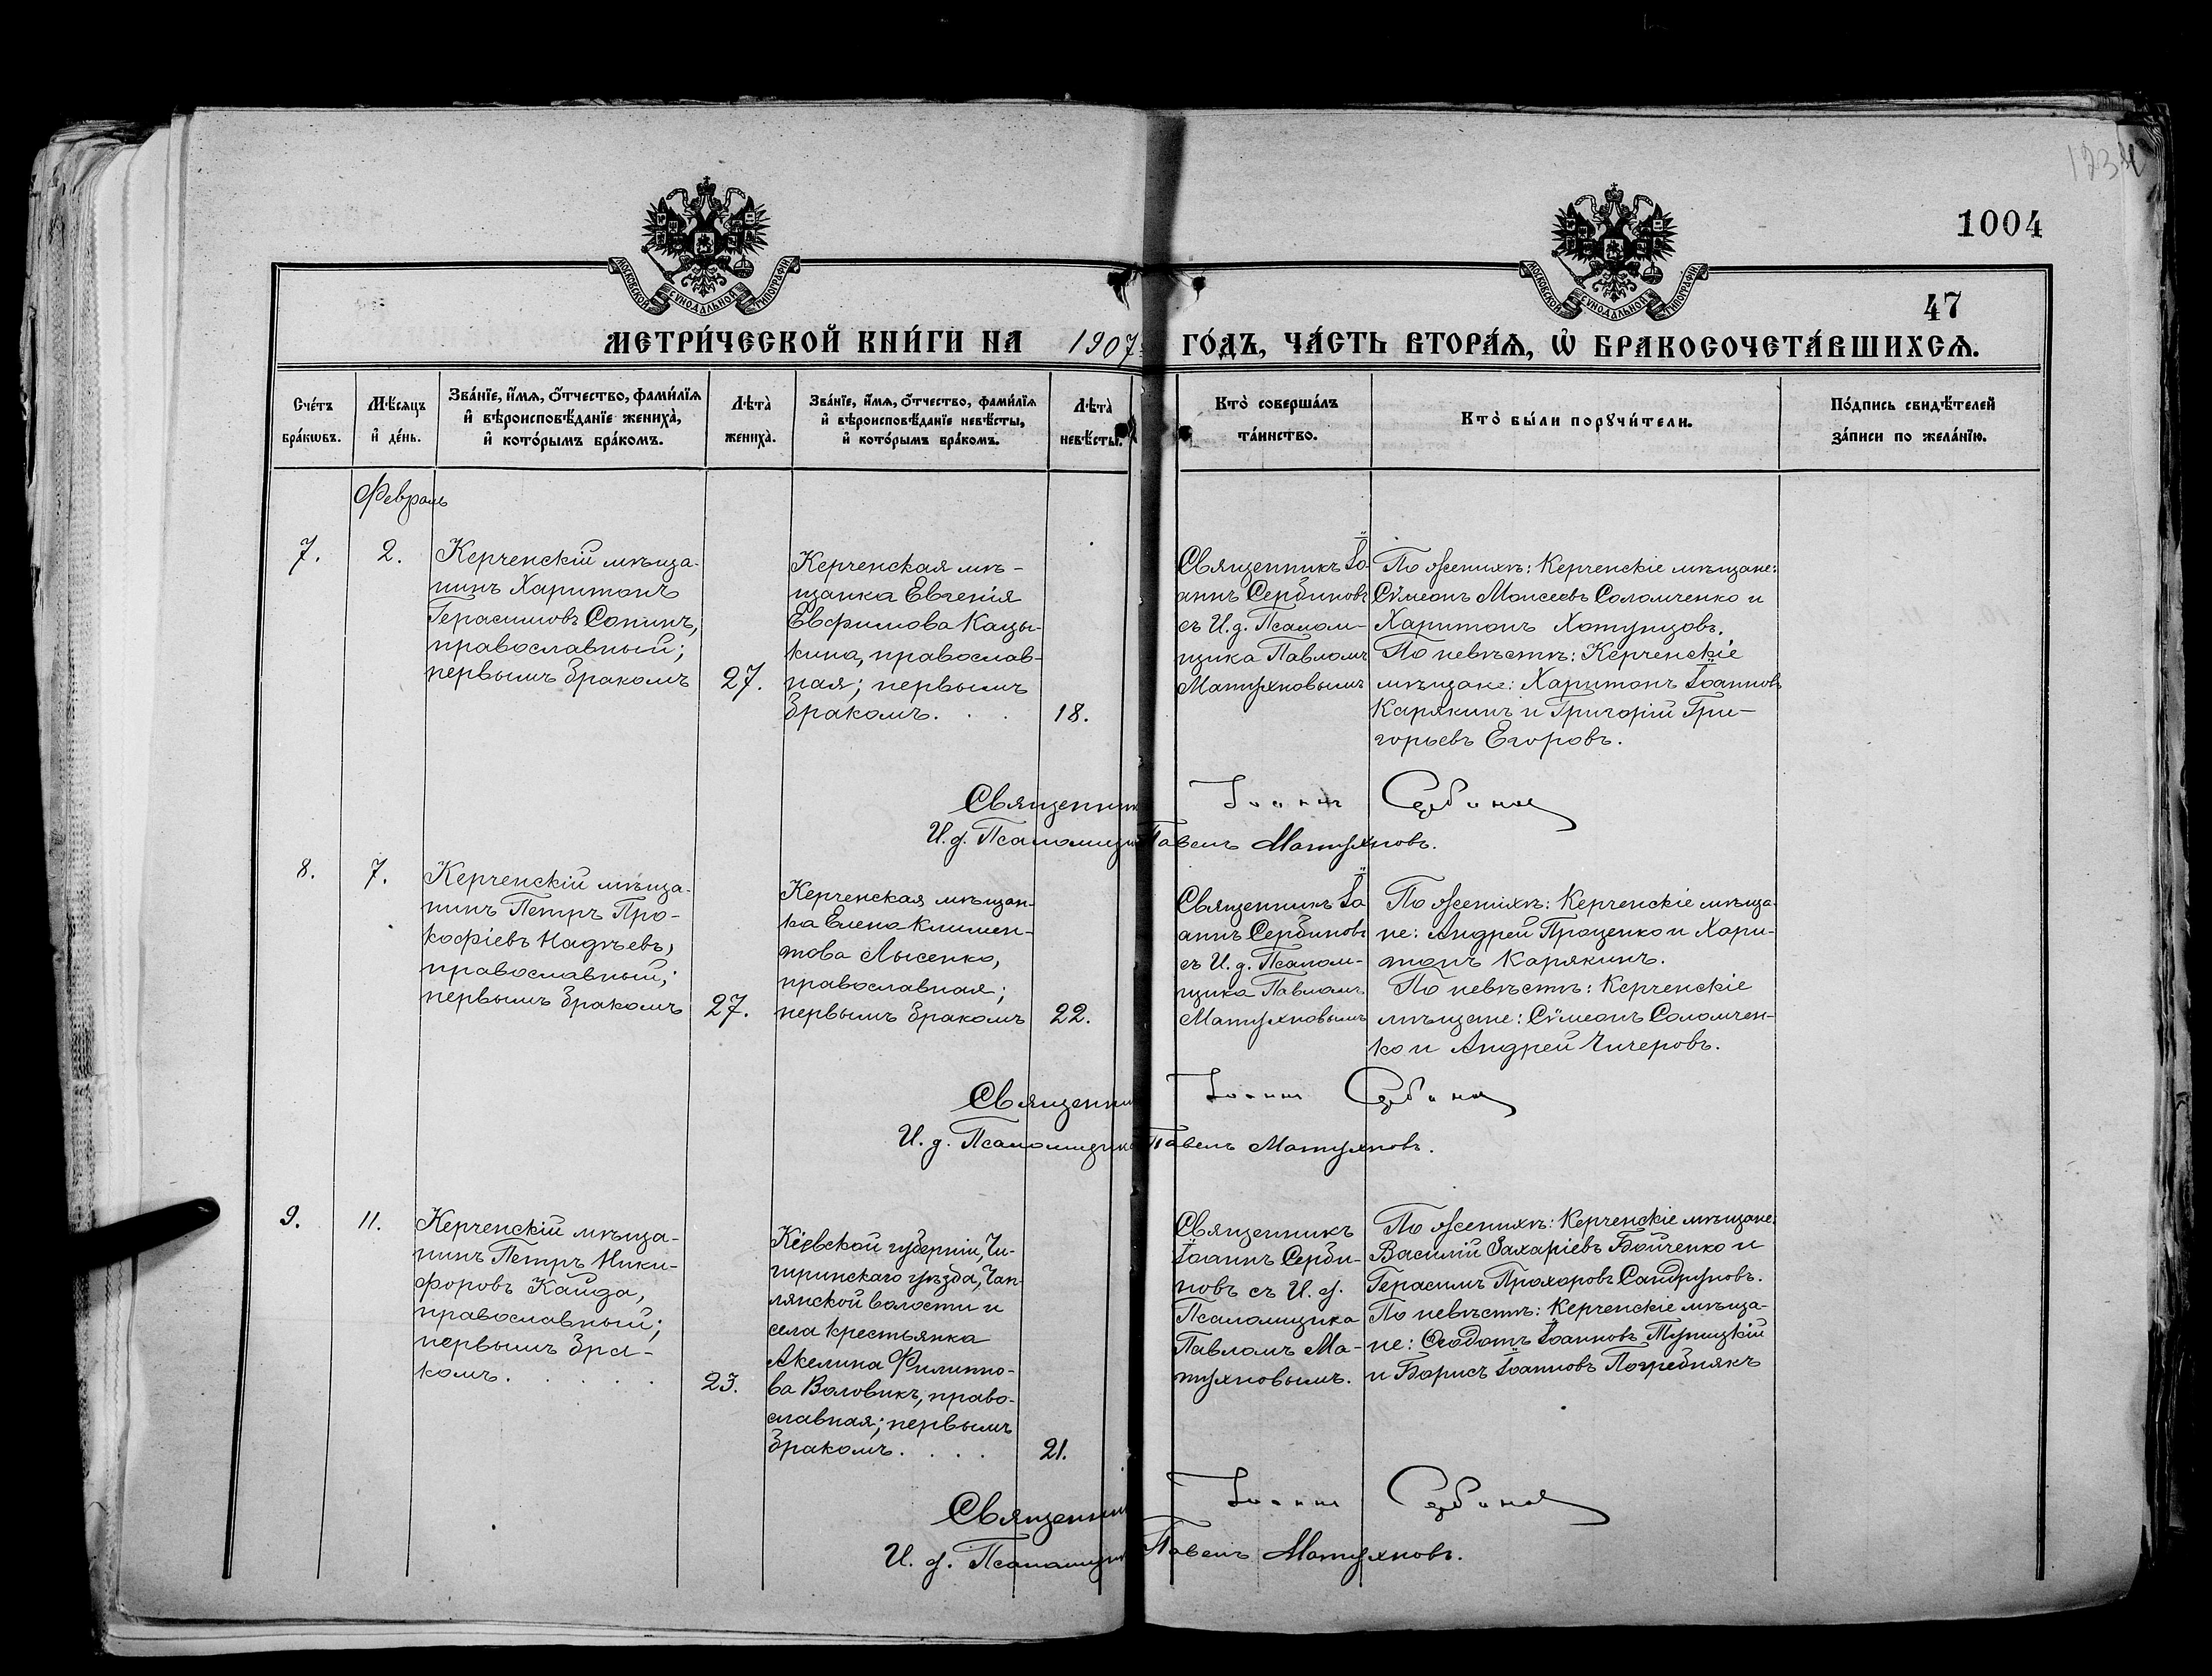 1004
47
МОСКОВСКОЙ СѴНОДАЛЬНОЙ ТИПОГРАФІИ
МОСКОВСКОЙ СѴНОДАЛЬНОЙ ТИПОГРАФІИ
МЕТРИ́ЧЕСКОЙ КНИ́ГИ НА 1907 ГО́ДЪ, ЧА́СТЬ ВТОРА́Ѧ, Ѡ҆ БРАКОСОЧЕТА́ВШИХСѦ.
Сче́тъ
бра́кѡвъ.
Мѣ́сѧцъ
и҆ де́нь.
Зва́нїе, и҆́мѧ, ѻ҆́тчество, фами́лїѧ
и҆ вѣроисповѣ́данїе жениха̀,
и҆ кото́рымъ бра́комъ.
Лѣта̀
жениха̀.
Зва́нїе, и҆́мѧ, ѻ҆́тчество, фами́лїѧ
и҆ вѣроисповѣ́данїе невѣ́сты,
и҆ кото́рымъ бра́комъ.
Лѣта̀
невѣ́сты.
Кто̀ соверша́лъ
та́инство.
Кто̀ бы́ли порꙋчи́тели.
По́дпись свидѣ́телей
за́писи по жела́нїю.
Февраль
7.
2.
Керченскій мѣща-
нинъ Харитонъ
Герасимовъ Сопинъ,
православный;
первымъ бракомъ
27.
Керченская мѣ-
щанка Евгенія
Евфимова Кацы-
кина, православ-
ная; первымъ
бракомъ.
18.
Священникъ Іо-
аннъ Сербиновъ
съ И.д. Псалом-
щика Павломъ
Матухновымъ
По женихѣ: Керченскіе мѣщане:
Сѵмеонъ Моисеевъ Соломченко и
Харитонъ Хотунцовъ.
По невѣстѣ: Керченскіе
мѣщане: Харитонъ Іоанновъ
Карякинъ и Григорій Гри-
горьевъ Егоровъ.
Священник Іоаннъ Сербиновъ
И.д. Псаломщика Павелъ Матухновъ.
8.
7.
Керченскій мѣща-
нинъ Петръ Про-
кофіевъ Надѣевъ,
православный;
первымъ бракомъ
27.
Керченская мѣщан-
ка Елена Климен-
това Лысенко,
православная;
первымъ бракомъ
22.
Священникъ Іо-
аннъ Сербиновъ
съ И.д. Псалом-
щика Павломъ
Матухновымъ
По женихѣ: Керченскіе мѣща-
не: Андрей Проценко и Хари-
тонъ Карякинъ.
По невѣстѣ: Керченскіе
мѣщане: Сѵмеонъ Соломчен-
ко и Андрей Чичеровъ.
Священник Іоаннъ Сербиновъ
И.д. Псаломщика Павелъ Матухновъ.
9.
11.
Керченскій мѣща-
нинъ Петръ Ники-
форовъ Кайда,
православный;
первымъ бра-
комъ.
23.
Кіевской губерніи, Чи-
гиринскаго уѣзда, Чап-
лянской волости и
села крестьянка
Акелина Филиппо-
ва Воловикъ, право-
славная; первымъ
бракомъ.
21.
Священникъ
Іоаннъ Серби-
новъ съ И.д.
Псаломщика
Павломъ Ма-
тухновымъ.
По женихѣ: Керченскіе мѣщане:
Василій Захаріевъ Бойченко и
Герасимъ Прохоровъ Сандруновъ.
По невѣстѣ: Керченскіе мѣща-
не: Ѳеодотъ Іоанновъ Тупицкій
и Борисъ Іоанновъ Погребнякъ
Священник Іоаннъ Сербиновъ
И.д. Псаломщик Павелъ Матухновъ.